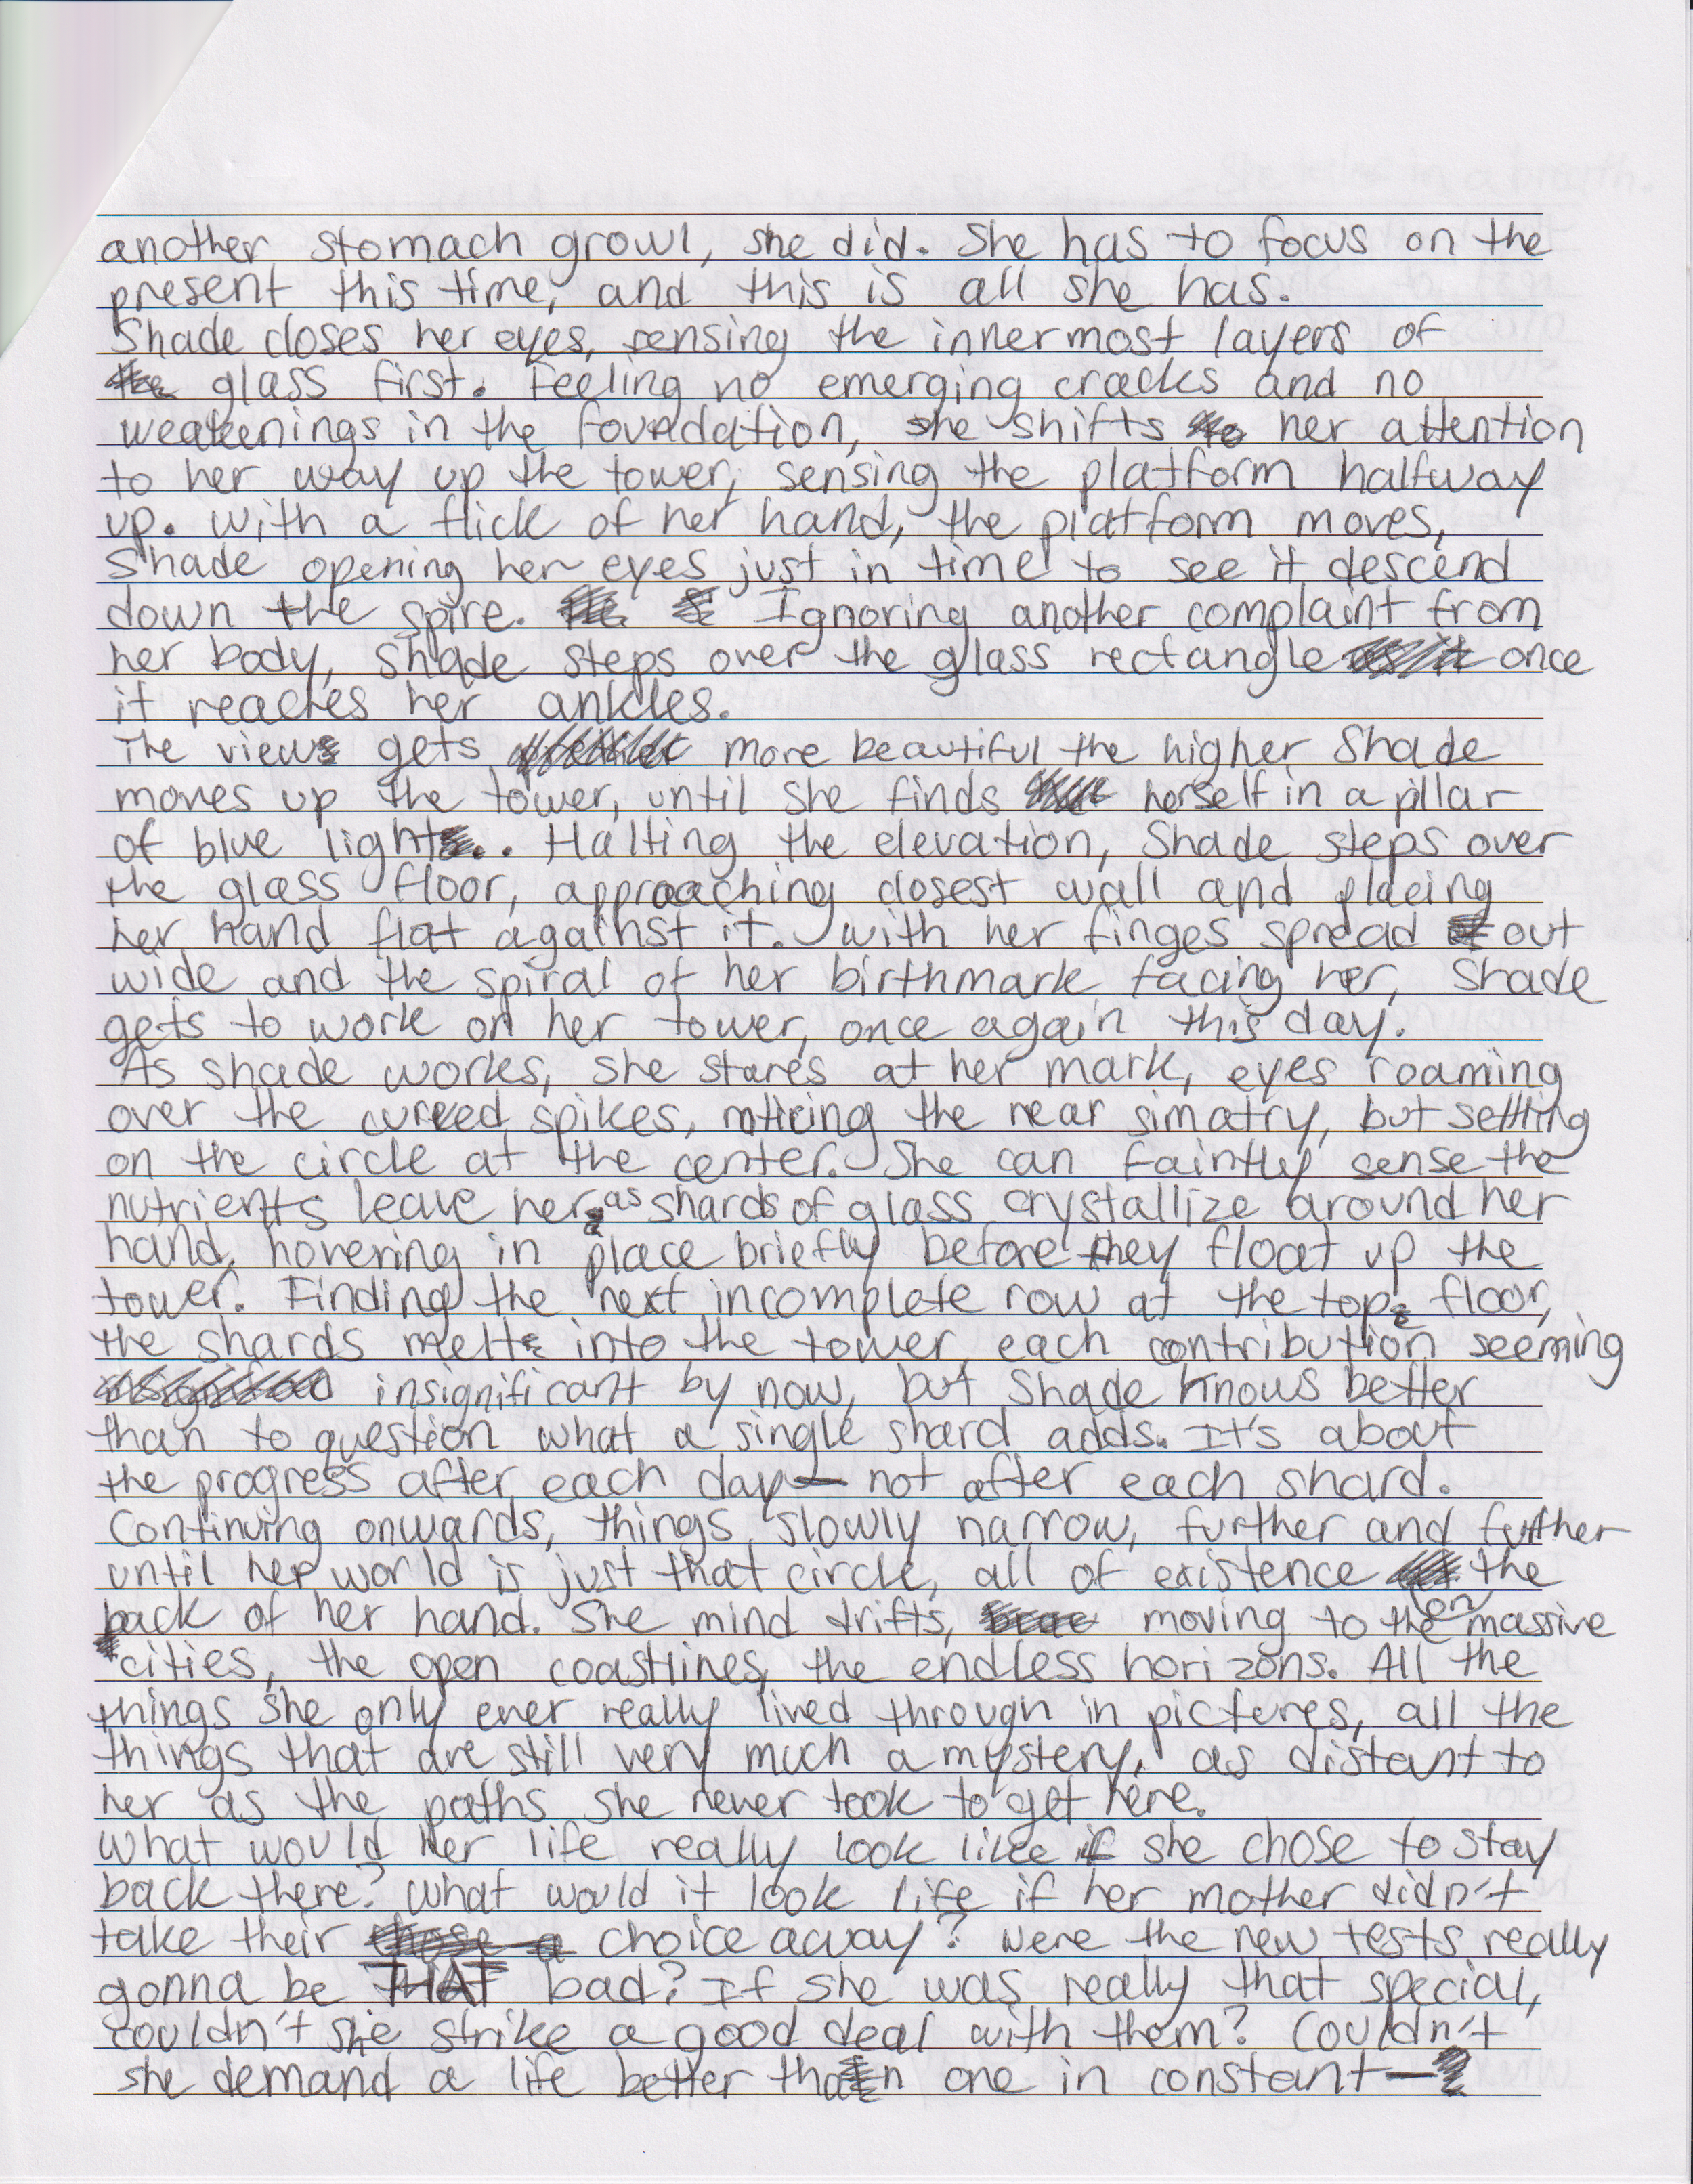 another stomach growl, she did. She has to focus on the
present this time, and this is all she has.
Shade closes her eyes, sensing the innermost layers of
glass first. Feeling no emerging cracks and no
weakenings in the foundation, she shifts her attention
to her way up the tower, sensing the platform halfway
up. With a flick of her hand, the platform moves,
Shade opening her eyes just in time to see it descend
down the spire. Ignoring another complaint from
her body, Shade steps over the glass rectangle once
it reaches her ankles.
The view gets more beautiful the higher Shade
moves up the tower, until she finds herself in a pillar
of blue light. Halting the elevation, Shade steps over
the glass floor, approaching closest wall and placing
her hand flat against it. With her finges spread out
wide and the spiral of her birthmark facing her, Shade
gets to work on her tower, once again this day.
As shade works, she stares at her mark, eyes roaming
over the curved spikes, noticing the near simatry, but settling
on the circle at the center. She can faintly sense the
nutrients leave her as shards of glass crystallize around her
hand, hovering in place briefly before they float up the
tower. Finding the next incomplete row at the top floor,
the shards melt into the tower, each contribution seeming
insignificant by now, but Shade knows better
than to question what a single shard adds. It's about
the progress after each day— not after each shard.
Continuing onwards, things slowly narrow, further and further
until her world is just that circle, all of existence the
back of her hand. She mind drifts, moving to the on massive
cities, the open coastlines, the endless horizons. All the
things she only ever really lived through in pictures, all the
things that are still very much a mystery, as distant to
her as the paths she never took to get here.
What would her life really look like if she chose to stay
back there? What would it look life if her mother didn't
take their choice away? Were the new tests really
gonna be THAT bad? If she was really that special,
couldn't she strike a good deal with them? Couldn't
she demand a life better than one in constant—